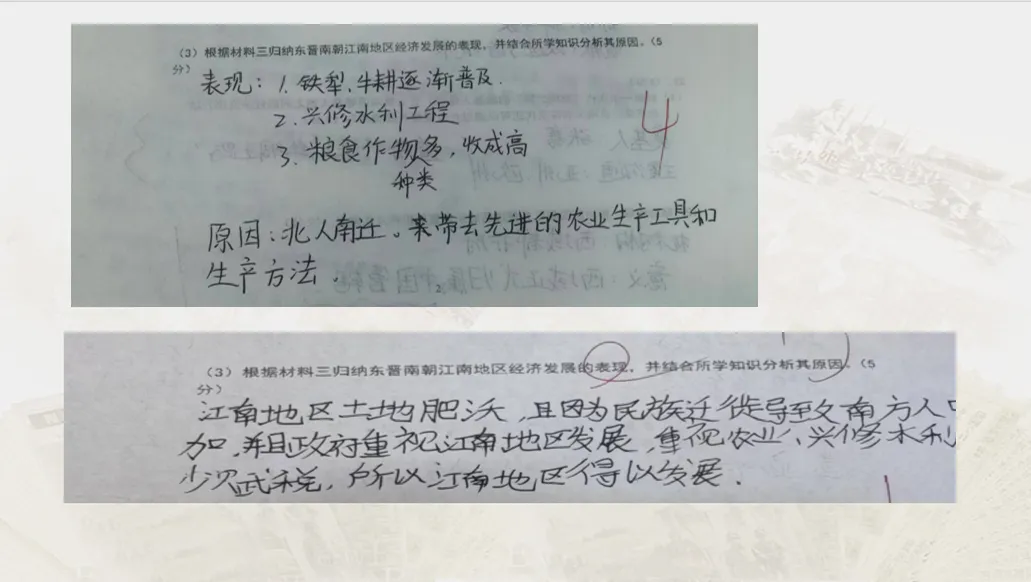 (3)根据材料三归纳东晋南朝江南地区经济发展的表现,并结合所学知识分析其原因。(5
分)
表现:1.铁犁,牛耕逐渐普及.
2.兴修水利工程
3.粮食作物多,收成高
种类
4
原因:北人南迁。带去先进的农业生产工具和
生产方法.
(3)根据材料三归纳东晋南朝江南地区经济发展的表现,并结合所学知识分析其原因。(5
分)
江南地区土地肥沃,且因为民族迁徙导致南方人口
加,并且政府重视江南地区发展,重视农业、兴修水利
少赋税,所以江南地区得以发展.